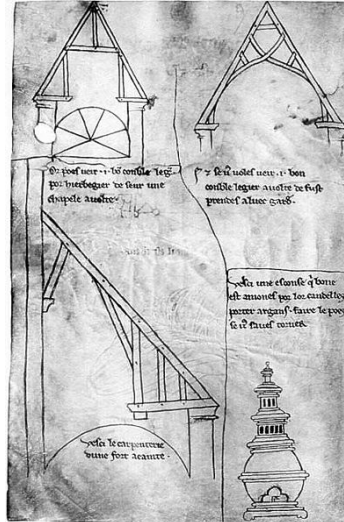 Or poes veir .i. bō conble legier
por herbegier de seur une
chapele avolte.
⁊ se u voles veir .i. bon
conble legier avolte de fust
prendes aluec gard.
Vesci une esconse q̄ bone
est a mones por lor candelles
porter argans. faire le poes
se u saves torner.
Vesci le carpenterie
dune fort acainte.